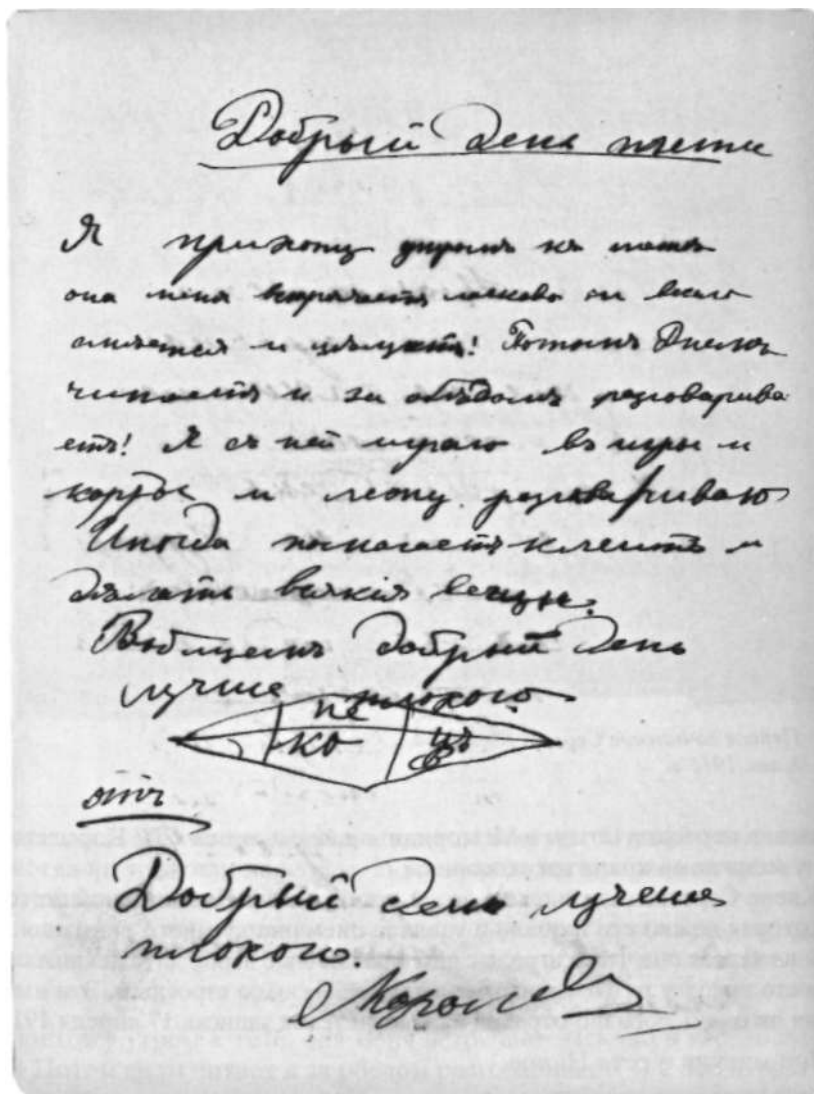 Добрый день тети
Я прихожу утромъ къ
она меня встрѣчаетъ ласково
смѣется и цѣлуетъ! Потомъ Днемъ
читаетъ и за обѣдомъ разговарива
етъ! Я съ ней играю въ игры и
карты и лежу разговариваю
Иногда помогаетъ клеить и
дѣлать всякія вещы.
Вобщемъ добрый день
лучше плохого.
ко не цъ
Добрый день лучше
плохого.
Королев